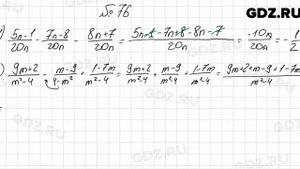 GDZ.RU
№ 76
) (5n-1)/20n - (7n-8)/20n - (8n+7)/20n = (5n-1-7n+8-8n-7)/20n = -10n/20n = -1/2
) (9m+2)/(m²-4) - (m-9)/(4-m²) + (1-7m)/(m²-4) = (9m+2)/(m²-4) + (m-9)/(m²-4) + (1-7m)/(m²-4) = (9m+2+m-9+1-7m)/(m²-4)
=
GDZ.RU